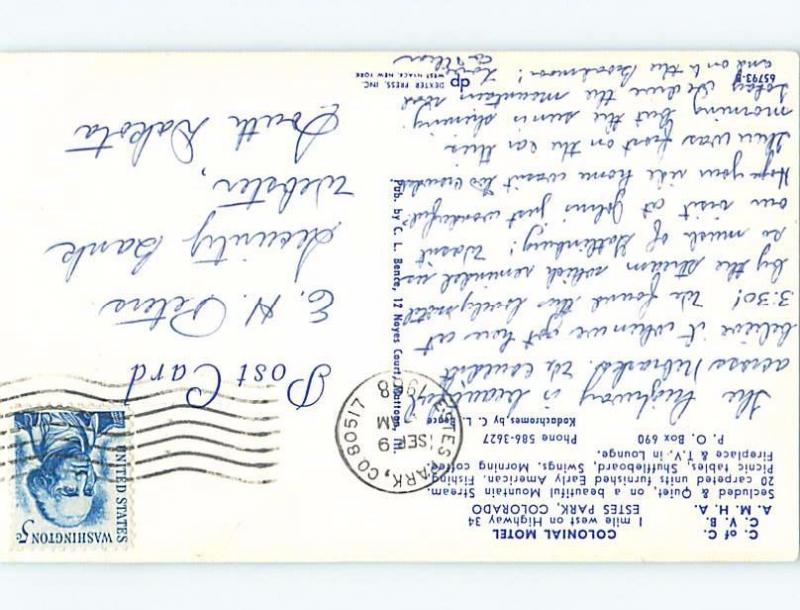 C. of C.
C. V. B.
A. M. H. A.
COLONIAL MOTEL
1 mile west on Highway 34
ESTES PARK, COLORADO
Secluded & Quiet, on a beautiful Mountain Stream.
20 carpeted units furnished Early American. Fishing,
Picnic tables, Shuffleboard, Swings, Morning coffee,
Fireplace & T.V. in Lounge.
P. O. Box 690 Phone 586-3627
Kodachromes by C. L. Bence
The highway is beautiful
across Nebraska. We couldn't
believe it when we got here at
3:30! We found this lovely motel
by the stream which reminded us
so much of Gatlinburg! Wasn't
our visit at John's just wonderful!
Hope your ride home wasn't too crowded
There was frost on the car this
morning but the sun is shining.
Today we drive the mountain road
and on to the
65793-B
Pub. by C. L. Bence, 12 Noyes Court,
dp
DEXTER PRESS, INC.
WEST NYACK, NEW YORK
ESTES PARK, CO 80517
SEP 9
Post Card
UNITED STATES
WASHINGTON 5c
E. H. Peters
Security Bank
Webster,
South Dakota